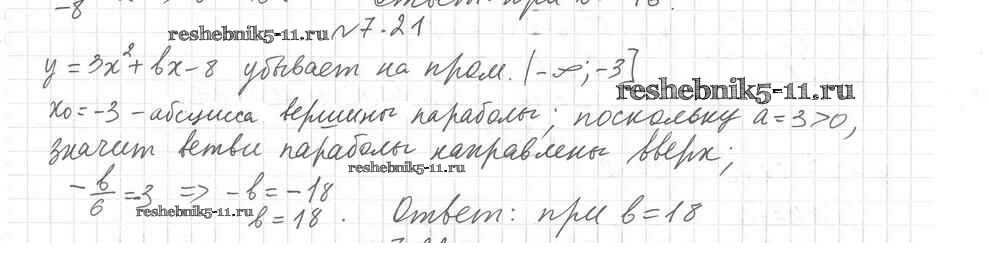 -8
Ответ: при
reshebnik5-11.ru №7.21
y = 3x² + bx - 8 убывает на пром. (-∞; -3]
reshebnik5-11.ru
x₀ = -3 - абсцисса вершины параболы; поскольку a = 3 > 0,
значит ветви параболы направлены вверх;
reshebnik5-11.ru
-b/6 = -3 => -b = -18
reshebnik5-11.ru
b = 18. Ответ: при b = 18